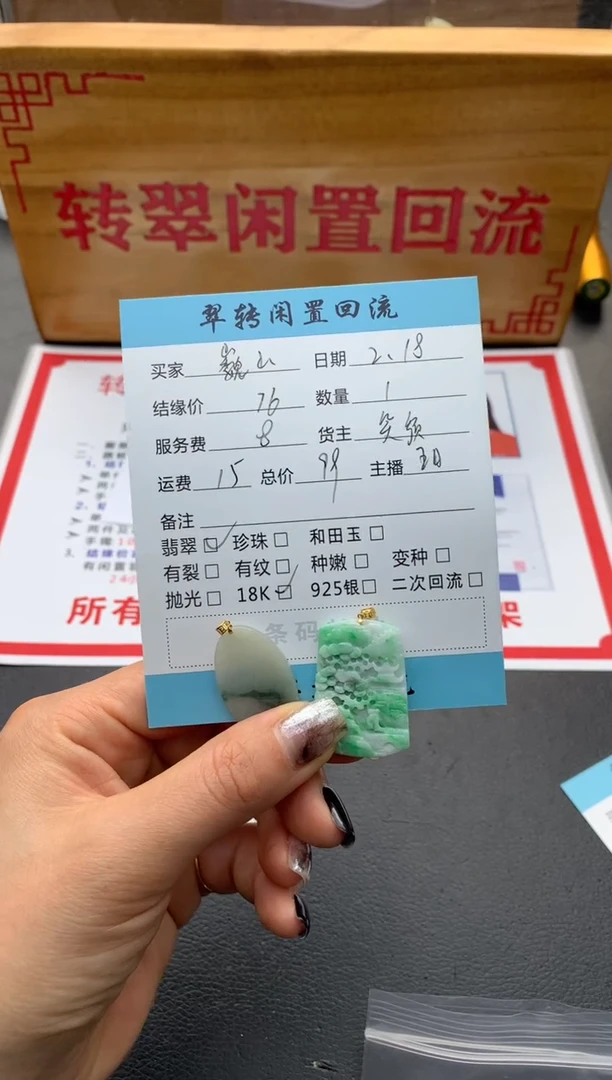 转翠闲置回流
翠转闲置回流
买家 魏 日期 2.18
结缘价 76 数量 1
服务费 8 货主
运费 15 总价 99 主播
备注
翡翠 珍珠 和田玉
有裂 有纹 种嫩 变种
抛光 18K 925银 二次回流
条码
所有
架